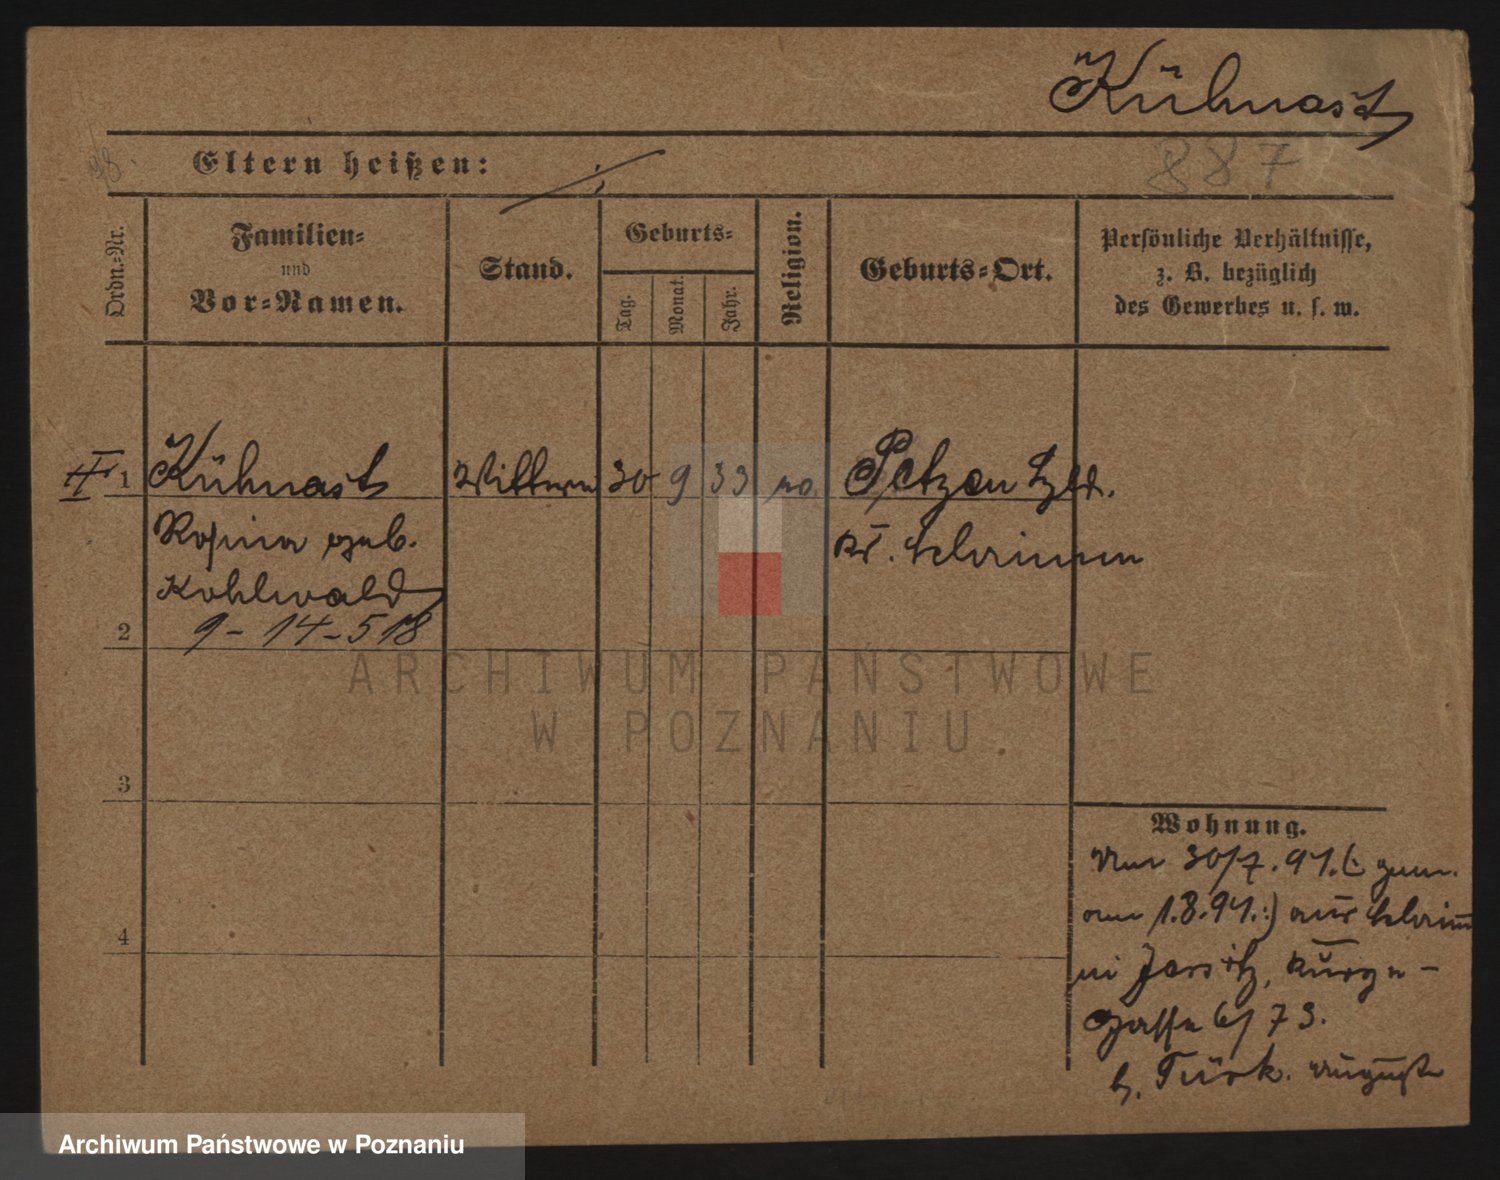 Kühnast
Eltern heißen: ./.
887
Ordn.-Nr.
Familien-
und
Vor-Namen.
Stand.
Geburts-
Tag.
Monat.
Jahr.
Religion.
Geburts-Ort.
Persönliche Verhältnisse,
z. B. bezüglich
des Gewerbes u. s. w.
II 1 Kühnast Wittwe 30 9 33 Petzen
Rosina geb. Kr. Schrimm
Kohlwald
2 9-14-518
3
4
Wohnung.
30/7. 91. (: gem.
am 1.8.91. :) aus Schrimm
in Jersitz, Kurze-
gasse 6/73.
b. Türk. Auguste
ARCHIWUM PAŃSTWOWE
W POZNANIU
Archiwum Państwowe w Poznaniu